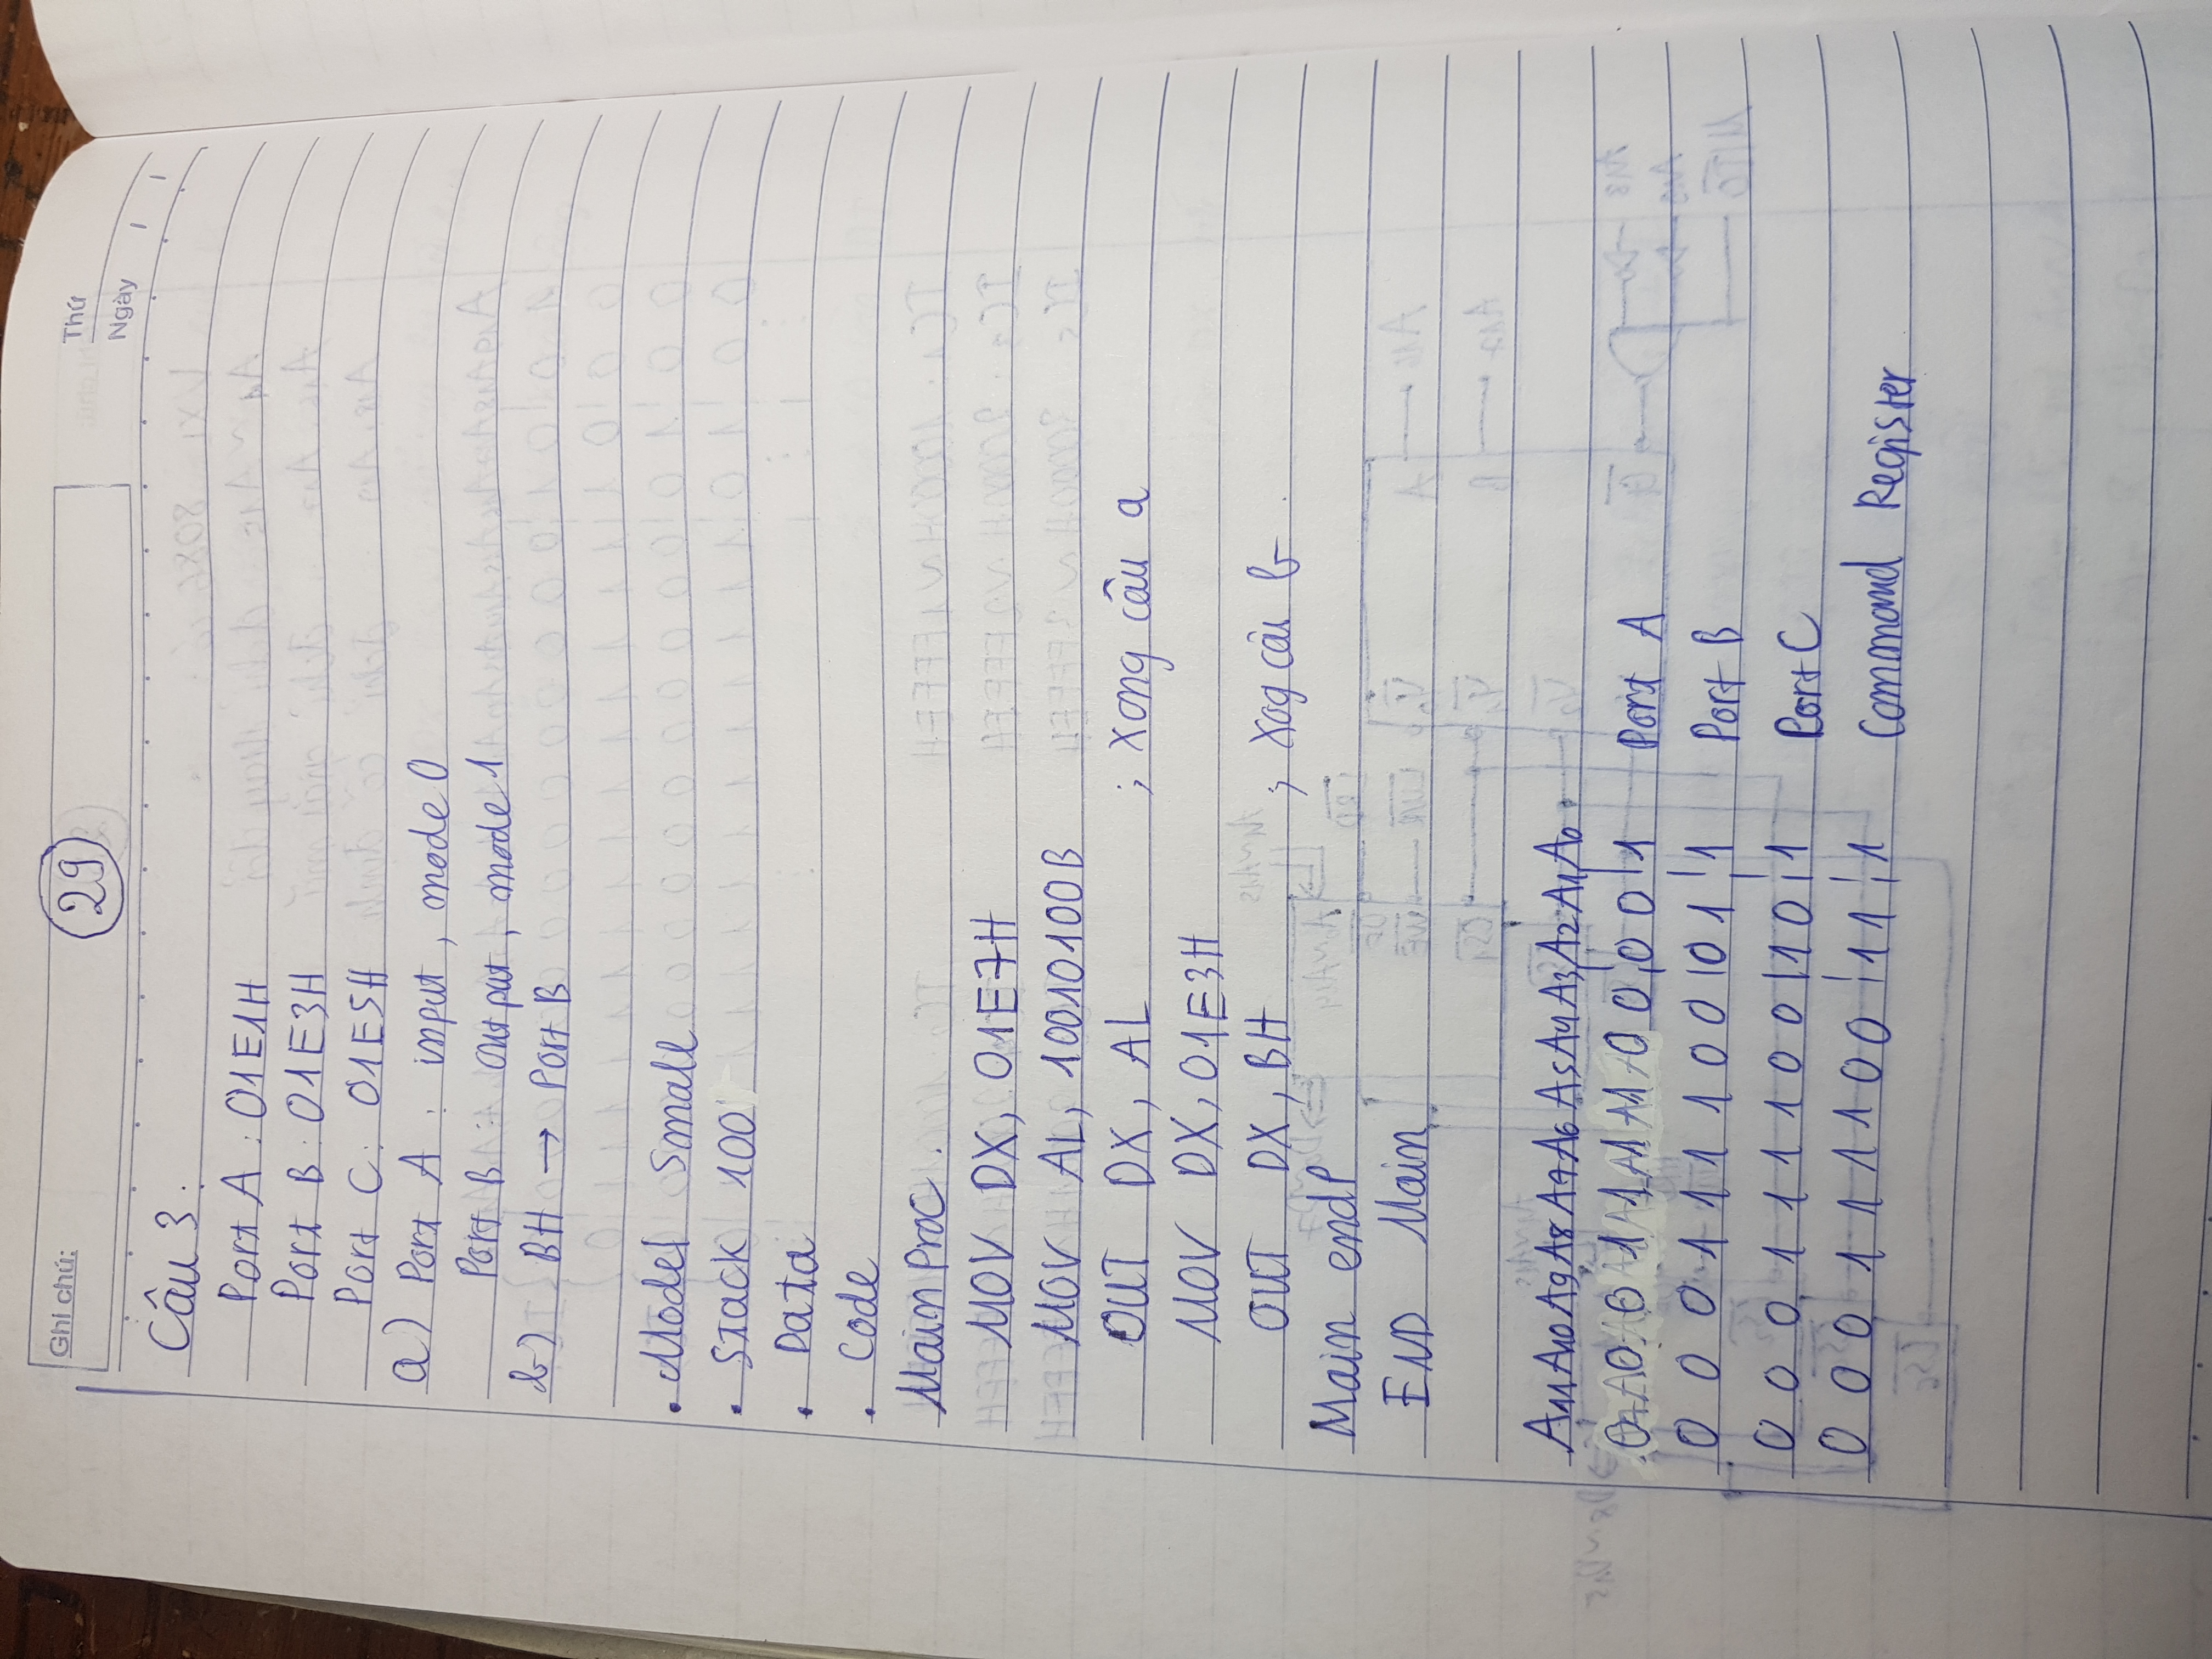 Ghi chú:
29
Thứ
Ngày / /
Câu 3:
Port A : 01E1H
Port B : 01E3H
Port C : 01E5H
a) Port A : input, mode 0
Port B : output, mode 1
b) BH → Port B
. Model Small
. Stack 100
. Data
. Code
Main Proc.
MOV DX, 01E7H
MOV AL, 10010100B
OUT DX, AL ; Xong câu a
MOV DX, 01E3H
OUT DX, BH ; Xog câu b.
Main endP
END Main
A11 A10 A9 A8 A7 A6 A5 A4 A3 A2 A1 A0
0 0 0 1 1 1 1 0 0 0 0 1 Port A
0 0 0 1 1 1 1 0 0 0 1 1 Port B
0 0 0 1 1 1 1 0 0 1 0 1 Port C
0 0 0 1 1 1 1 0 0 1 1 1 Command Register